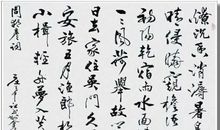 燎沉香消溽暑鳥
晴侵曉窺檐語
陽乾宿雨水面
一一風荷舉故
日去家住吴門久
安旅五月漁郎
小楫輕舟夢入
周邦彦詞